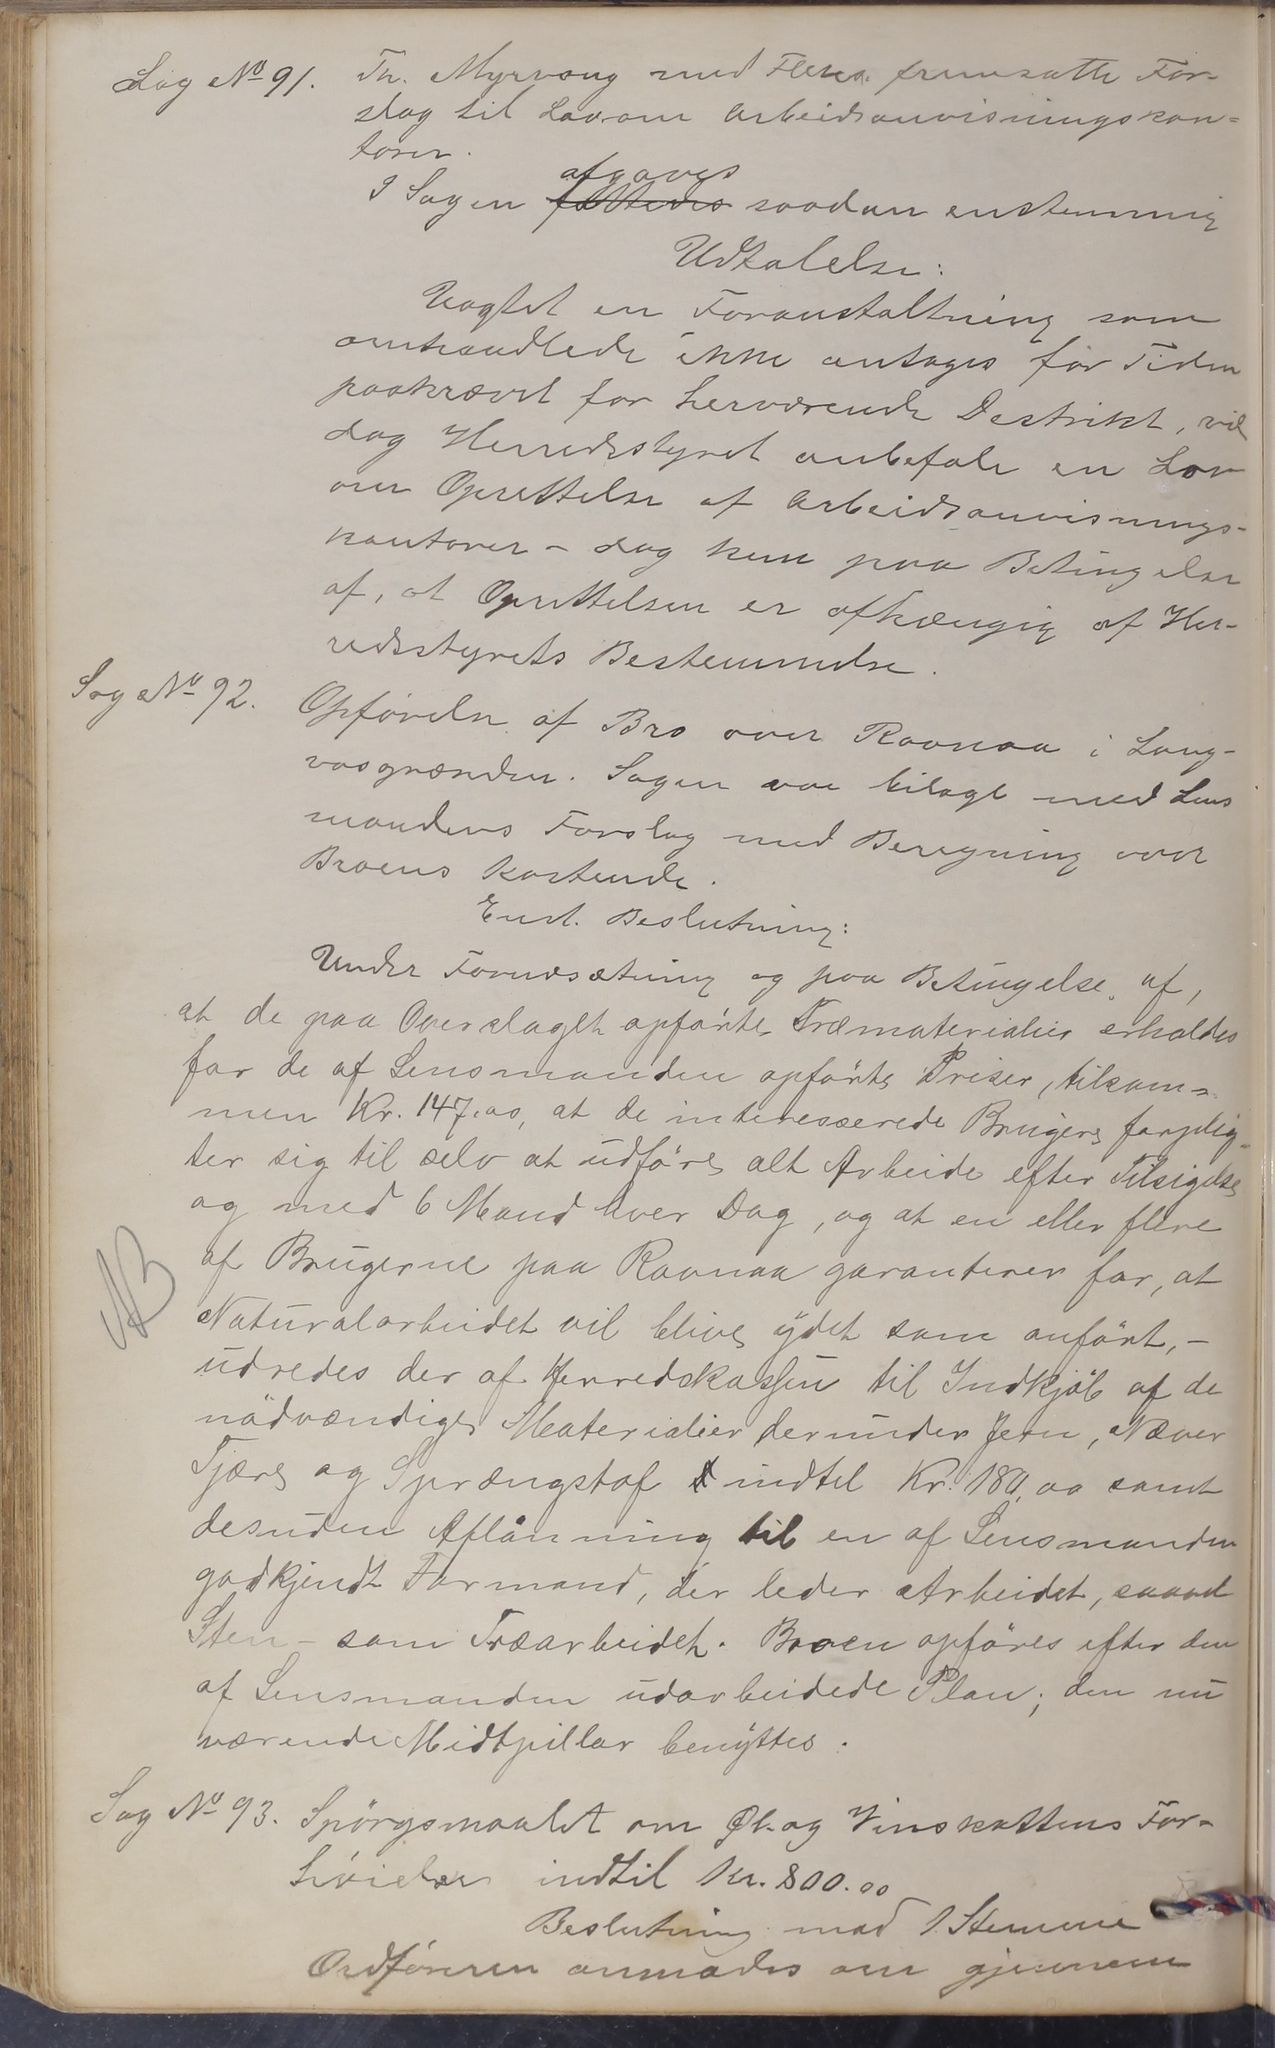 Sag No 91. Th. Myrvang med Flere fremsatte For-
slag til Lov om Arbeidsanvisningskon-
torer.
afgaves
I Sagen fattedes saadan enstemmig
Udtalelse:
Uagtet en Foranstaltning som
omhandlede ikke antages for Tiden
paakrævet for herværende Destrikt, vil
dog Herredsstyret anbefale en Lov
om Oprettelse af Arbeidsanvisnings-
kontorer – dog kun paa Betingelse
af, at Oprettelsen er afhængig af Her-
redsstyrets Bestemmelse.
Sag No 92. Opførelse af Bro over Ravnaa i Lang-
vasgrænden. Sagen var bilagt med Lens
mandens Forslag med Beregning over
Broens Kostende.
Enst. Beslutning:
Under Forudsætning og paa Betingelse af,
at de paa Overslaget opførte Træmaterialier erholdes
for de af Lensmanden opførte Priser, tilsam-
men Kr. 147.00, at de interesserede Brugere forplig-
ter sig til selv at udføre alt Arbeide efter Tilsigelse
og med 6 Mand hver Dag, og at en eller flere
af Brugerne paa Ravnaa garanterer for, at
NB
Naturalarbeidet vil blive ydet som anført, –
udredes der af Herredskassen til Indkjøb af de
nødvændige Materialier derunder Jern, Næver
Tjære og Sprængstof indtil Kr. 180,00 samt
desuden Aflønning til en af Lensmanden
godkjendt Formand, der leder Arbeidet, saavel
Sten – som Træarbeidet. Broen opføres efter den
af Lensmanden udarbeidede Plan; den nu
værende Midtpillar benyttes.
Sag No 93. Spørgsmaalet om Øl- og Vinskattens For-
høielse indtil Kr. 800.00
Beslutning mod 1 Stemme
Ordføreren anmodes om gjennem